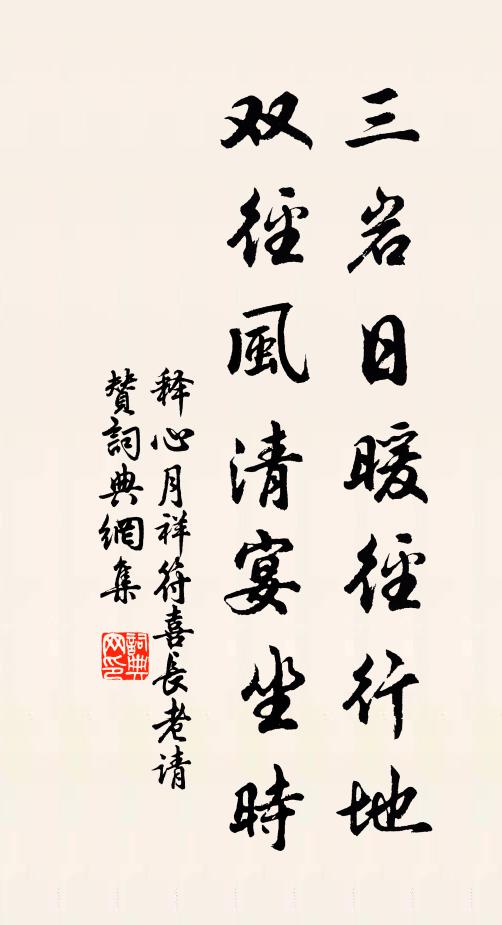 三岩日暖径行地
双径風清宴坐時
释心月祥符喜長老请
贊詞典網集
詞典網印